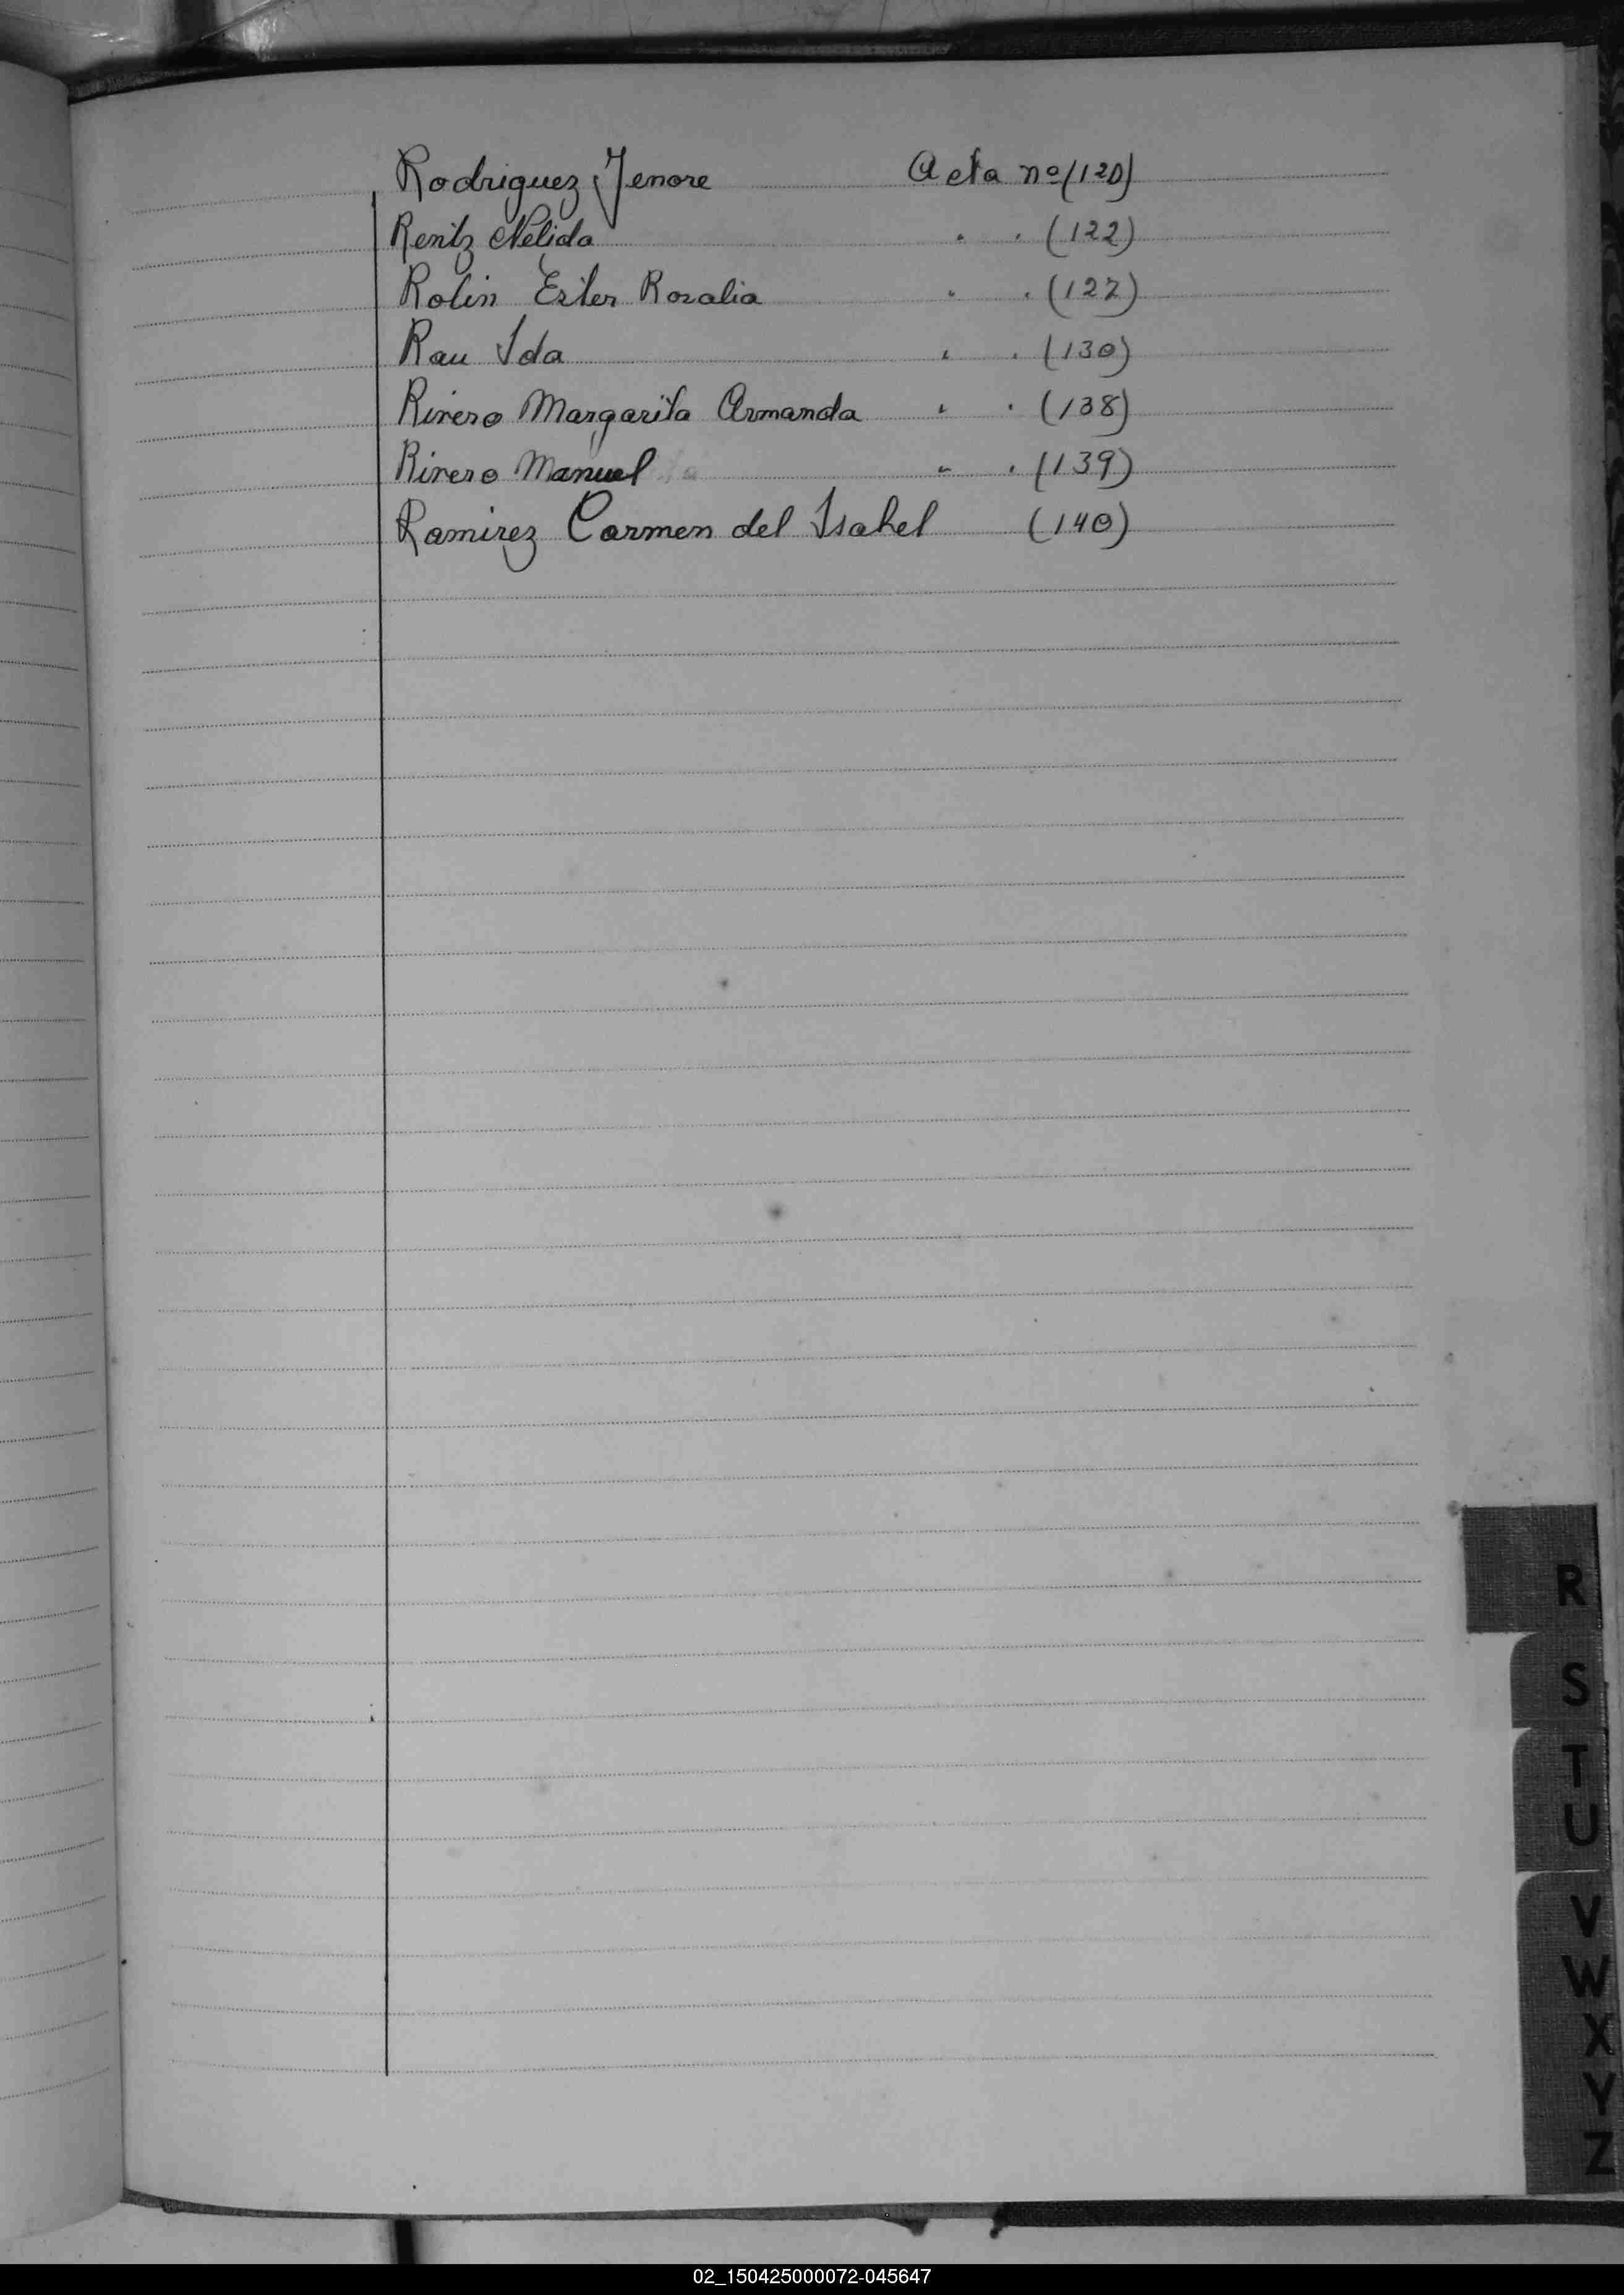 Rodriguez Jenore Acta nº (120)
Renitz Nelida " " (122)
Rolin Ester Rosalia " " (127)
Rau Ida " " (130)
Rivero Margarita Armanda " " (138)
Rivero Manuel " " (139)
Ramirez Carmen del Isabel (140)
R
S
T
U
V
W
X
Y
Z
02_150425000072-045647